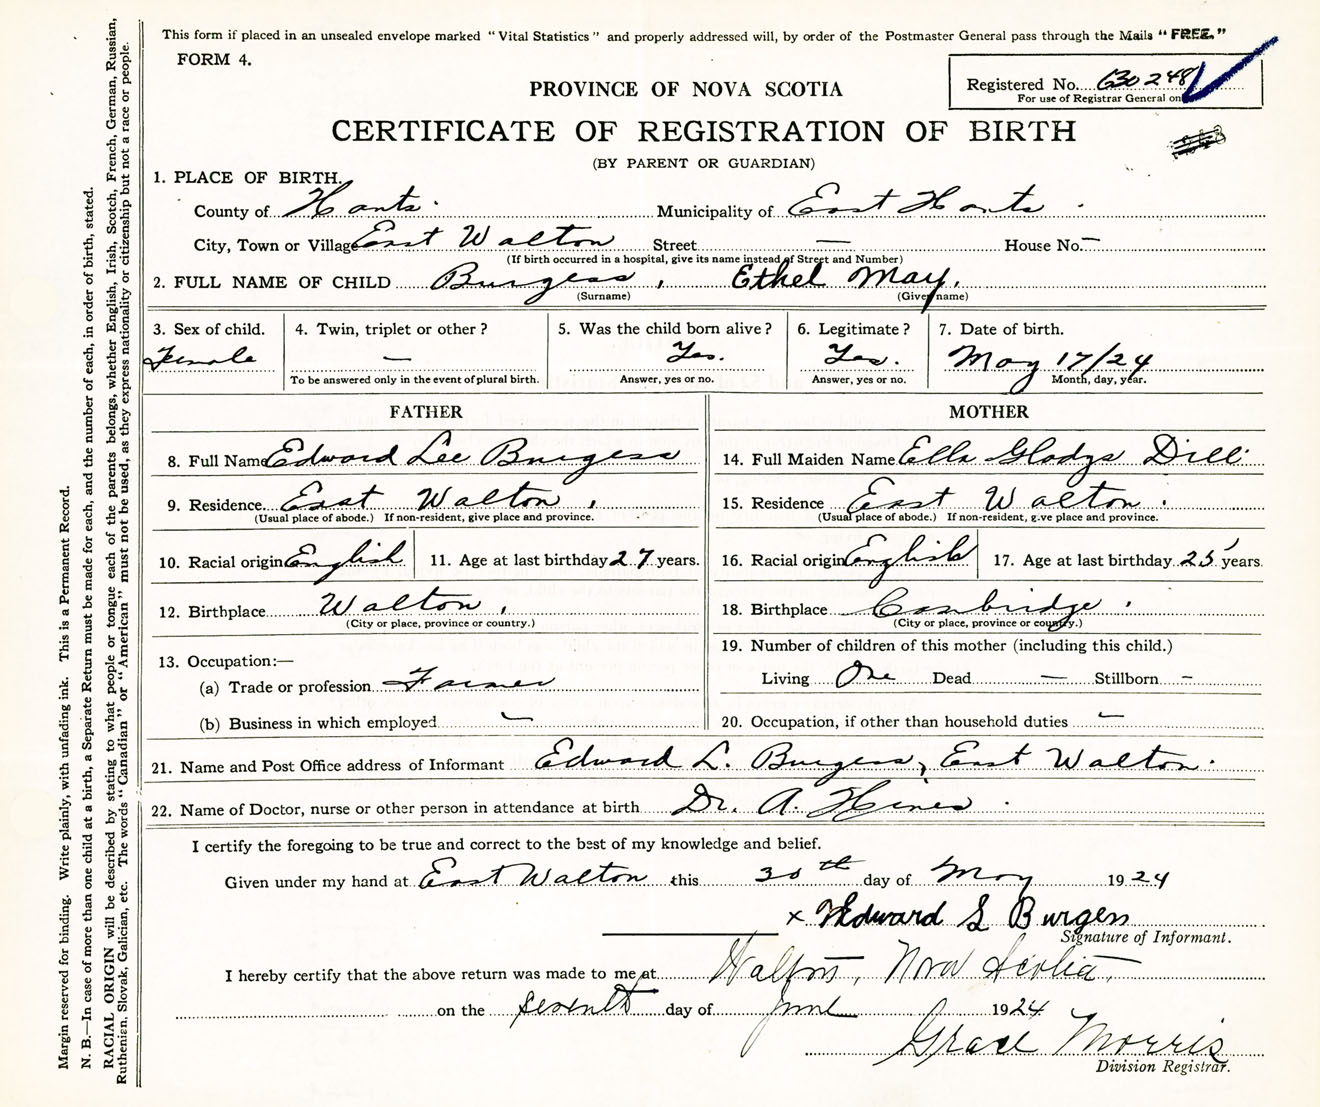 This form if placed in an unsealed envelope marked "Vital Statistics" and properly addressed will, by order of the Postmaster General pass through the Mails "FREE."
FORM 4.
Registered No. 630248
For use of Registrar General on
PROVINCE OF NOVA SCOTIA
CERTIFICATE OF REGISTRATION OF BIRTH
(BY PARENT OR GUARDIAN)
1. PLACE OF BIRTH.
County of Hants. Municipality of East Hants.
City, Town or Village East Walton Street — House No. —
(If birth occurred in a hospital, give its name instead of Street and Number)
2. FULL NAME OF CHILD Burgess, Ethel May.
(Surname) (Given name)
3. Sex of child. 4. Twin, triplet or other? 5. Was the child born alive? 6. Legitimate? 7. Date of birth.
Female — Yes. Yes. May 17/24
To be answered only in the event of plural birth. Answer, yes or no. Answer, yes or no. Month, day, year.
FATHER
8. Full Name Edward Lee Burgess
9. Residence. East Walton,
(Usual place of abode.) If non-resident, give place and province.
10. Racial origin English 11. Age at last birthday 27 years.
12. Birthplace Walton,
(City or place, province or country.)
13. Occupation:—
(a) Trade or profession Farmer
(b) Business in which employed —
MOTHER
14. Full Maiden Name Ella Gladys Dill.
15. Residence East Walton.
(Usual place of abode.) If non-resident, g.ve place and province.
16. Racial origin English 17. Age at last birthday 25 years.
18. Birthplace Cambridge.
(City or place, province or country.)
19. Number of children of this mother (including this child.)
Living One Dead — Stillborn -
20. Occupation, if other than household duties —
21. Name and Post Office address of Informant Edward L. Burgess, East Walton.
22. Name of Doctor, nurse or other person in attendance at birth Dr. A. Hines.
I certify the foregoing to be true and correct to the best of my knowledge and belief.
Given under my hand at East Walton this 30th day of May 1924
x Edward L Burgess
Signature of Informant.
I hereby certify that the above return was made to me at Walton, Nova Scotia,
on the seventh day of June 1924
Grace Morris
Division Registrar.
Margin reserved for binding. Write plainly, with unfading ink. This is a Permanent Record.
N. B.—In case of more than one child at a birth, a Separate Return must be made for each, and the number of each, in order of birth, stated.
RACIAL ORIGIN will be described by stating to what people or tongue each of the parents belongs, whether English, Irish, Scotch, French, German, Russian,
Ruthenian, Slovak, Galician, etc. The words "Canadian" or "American" must not be used, as they express nationality or citizenship but not a race or people.